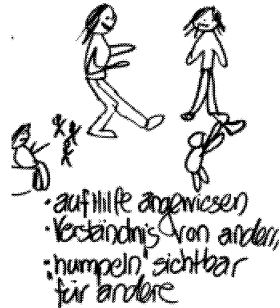 • auf Hilfe angewiesen
• Verständnis von andern
• humpeln sichtbar
für andere